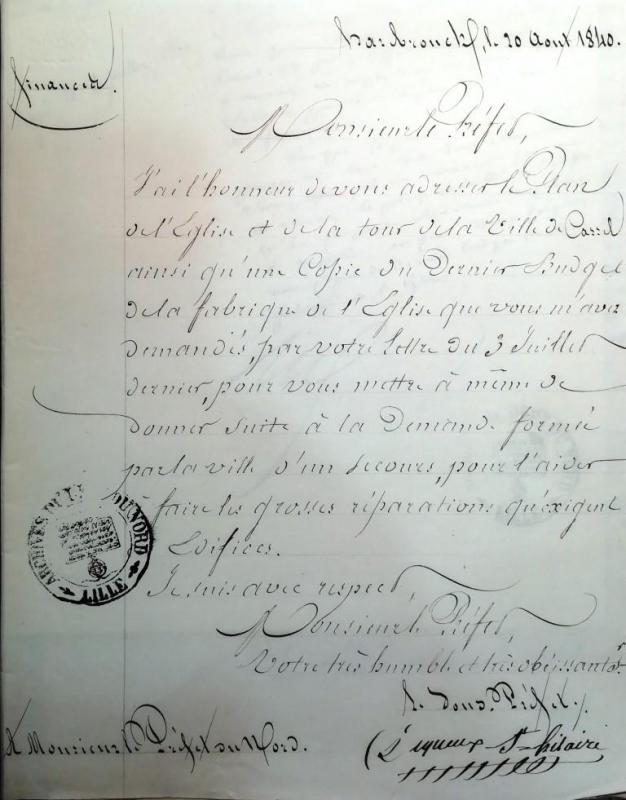 hazebrouck, le 20 Aout 1840.
finances.
Monsieur le Préfet,
J'ai l'honneur de vous adresser le Plan
de l'Eglise et de la tour de la Ville de Cassel
ainsi qu'une Copie du Dernier Budget
de la fabrique de l'Eglise que vous m'avez
demandés, par votre lettre du 3 Juillet
dernier, pour vous mettre à même de
donner suite à la Demande formée
par la ville d'un secours, pour l'aider
à faire les grosses réparations qu'exigent
Edifices.
Je suis avec respect,
Monsieur le Préfet,
Votre très humble et très obéissant Sr.
le Sous-Préfet,
A Monsieur le Préfet du Nord.
St hilaire
ARCHIVES DU NORD
LILLE